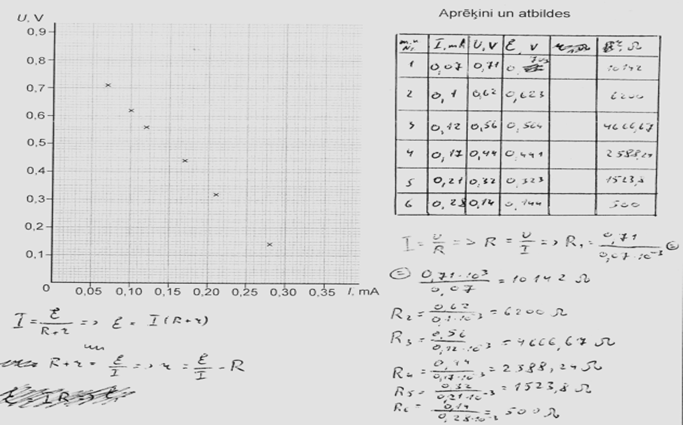 U, V
0,9
0,8
0,7
0,6
0,5
0,4
0,3
0,2
0,1
0 0,05 0,10 0,15 0,20 0,25 0,30 0,35 I, mA
I = ℰ/(R+r) => ℰ = I(R+r)
R+r = ℰ/I => r = ℰ/I - R
Aprēķini un atbildes
I, mA U, V ℰ, V R, Ω
1 0,07 0,71 10142
2 0,1 0,62 0,623 6200
3 0,12 0,56 0,564 4666,67
4 0,17 0,44 0,441 2588,24
5 0,21 0,32 0,323 1523,8
6 0,28 0,14 0,144 500
I = U/R => R = U/I => R₁ = 0,71/(0,07·10⁻³) =
= 0,71·10³/0,07 = 10142 Ω
R₂ = 0,62/(0,1·10⁻³) = 6200 Ω
R₃ = 0,56/(0,12·10⁻³) = 4666,67 Ω
R₄ = 0,44/(0,17·10⁻³) = 2588,24 Ω
R₅ = 0,32/(0,21·10⁻³) = 1523,8 Ω
R₆ = 0,14/(0,28·10⁻³) = 500 Ω